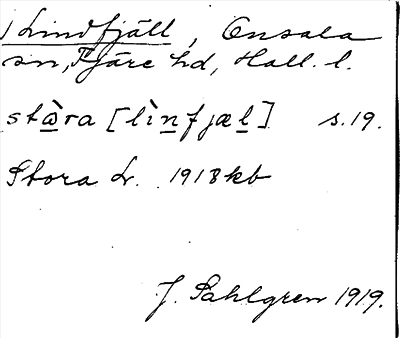 ) Lindfjäll, Onsala
sn, Fjäre hd, Hall. l.
stὼra [lìn̲fjæl̲] s. 19.
Stora L. 1918 kb
J. Sahlgren 1919.